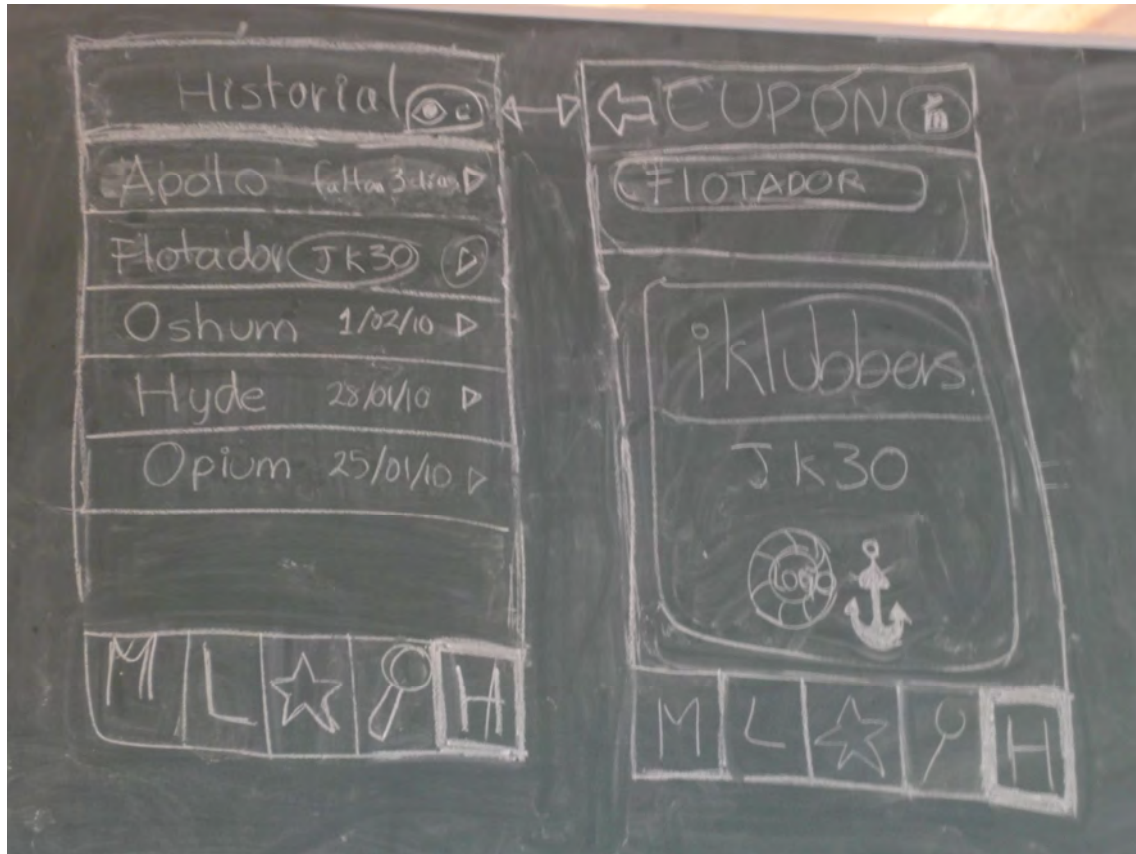 Historial
Apolo faltan 3 dias
Flotador JK30
Oshum 1/02/10
Hyde 28/01/10
Opium 25/01/10
M L H
CUPÓN
FLOTADOR
iklubbers.
JK30
Logo
M L H